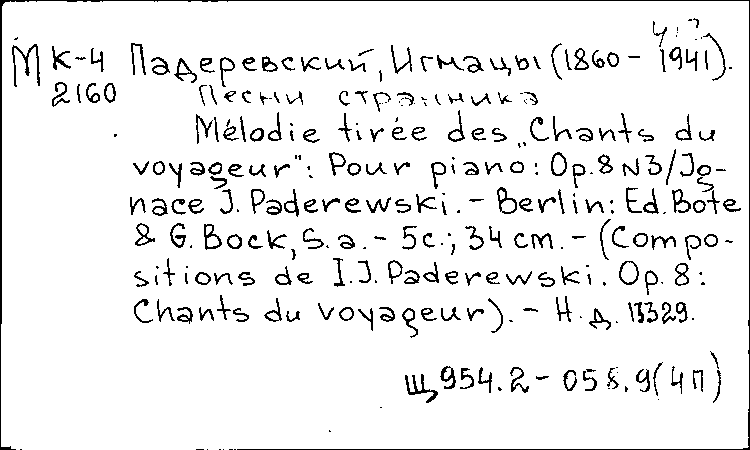 МК-4 Падеревский, Игмацы (1860 - 1941).
2160 Песни странника
Mélodie tirée des „Chants du
voyageur": Pour piano: Op. 8 N3/Ig-
nace J. Paderewski. - Berlin: Ed. Bote
& G. Bock, S. a. - 5c.; 34 cm. - (Compo-
sitions de I. J. Paderewski. Op. 8:
Chants du voyageur). - Н. д. 13329.
Щ954.2-058.9(4П)